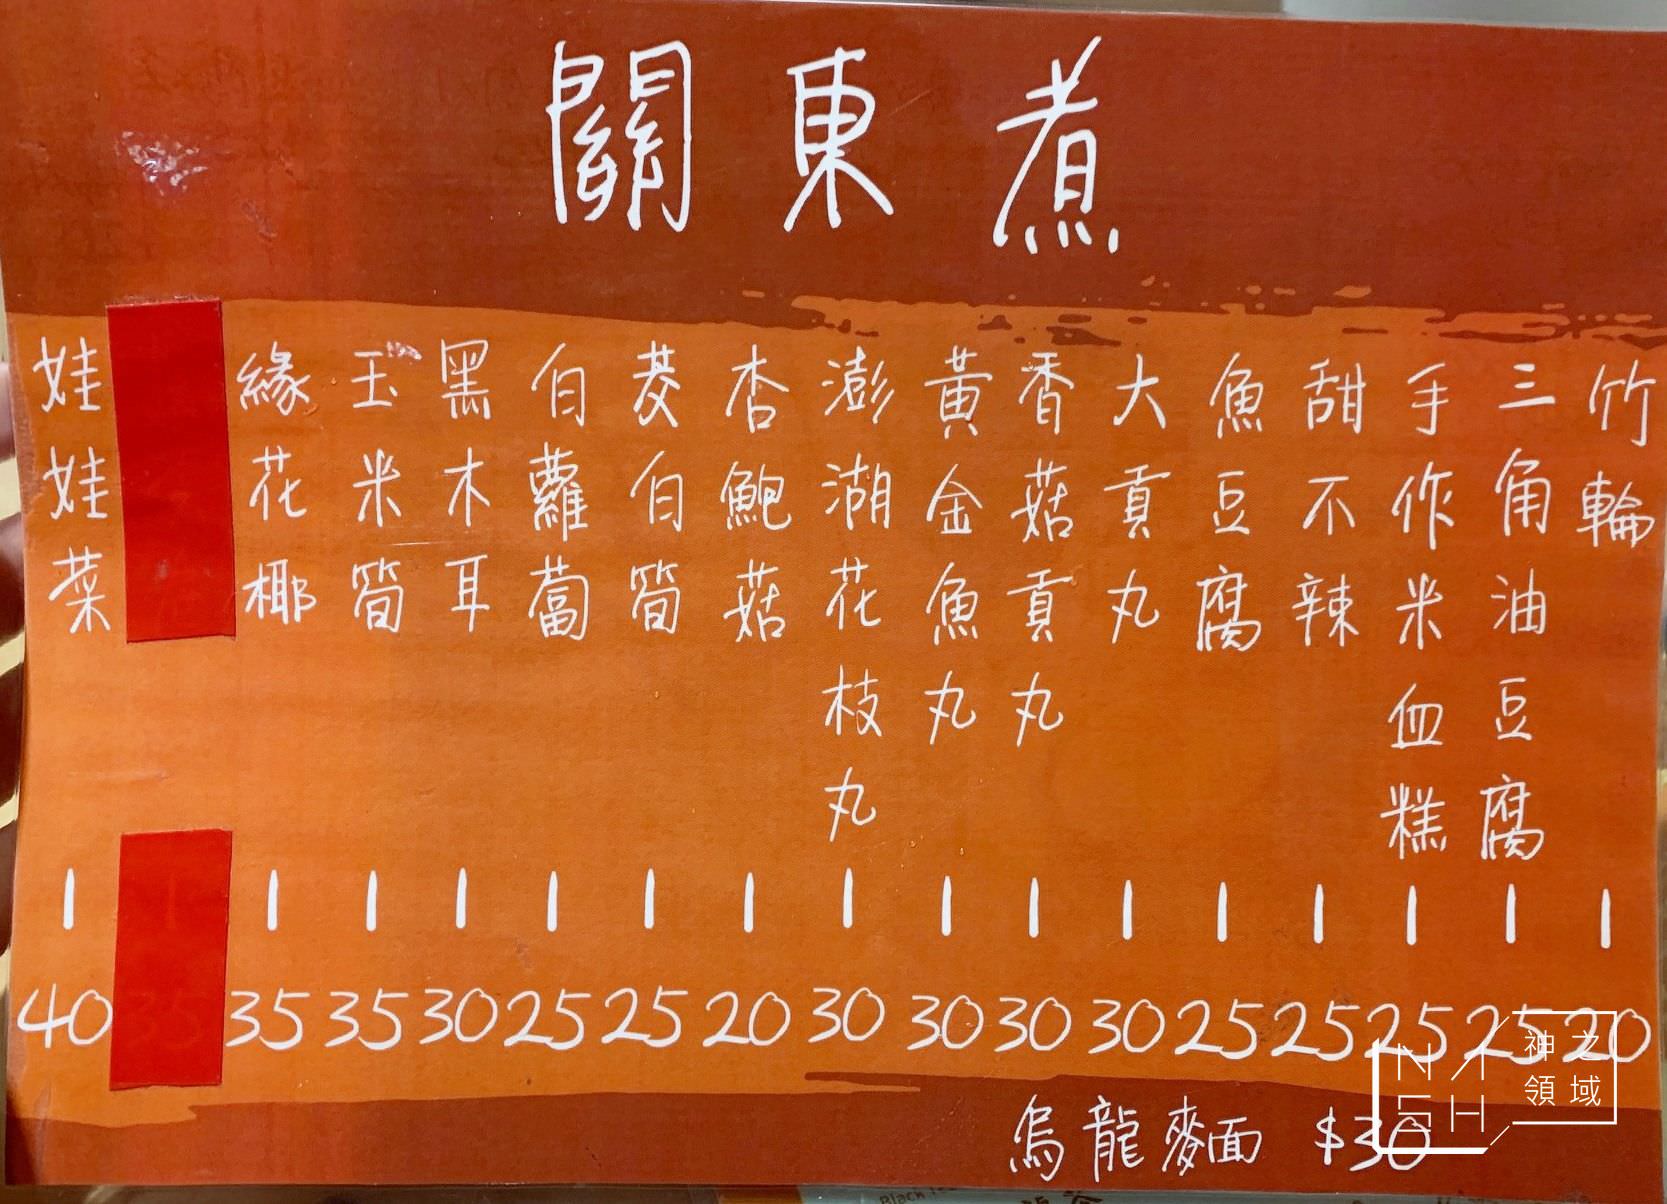 關東煮
竹輪 | 20
三角油豆腐 | 25
手作米血糕 | 25
甜不辣 | 25
魚豆腐 | 25
大貢丸 | 30
香菇貢丸 | 30
黃金魚丸 | 30
澎湖花枝丸 | 30
杏鮑菇 | 20
茭白筍 | 25
白蘿蔔 | 25
黑木耳 | 30
玉米筍 | 35
緣花椰 | 35
35
娃娃菜 | 40
烏龍麵 $30
神之
領域
Black Tea